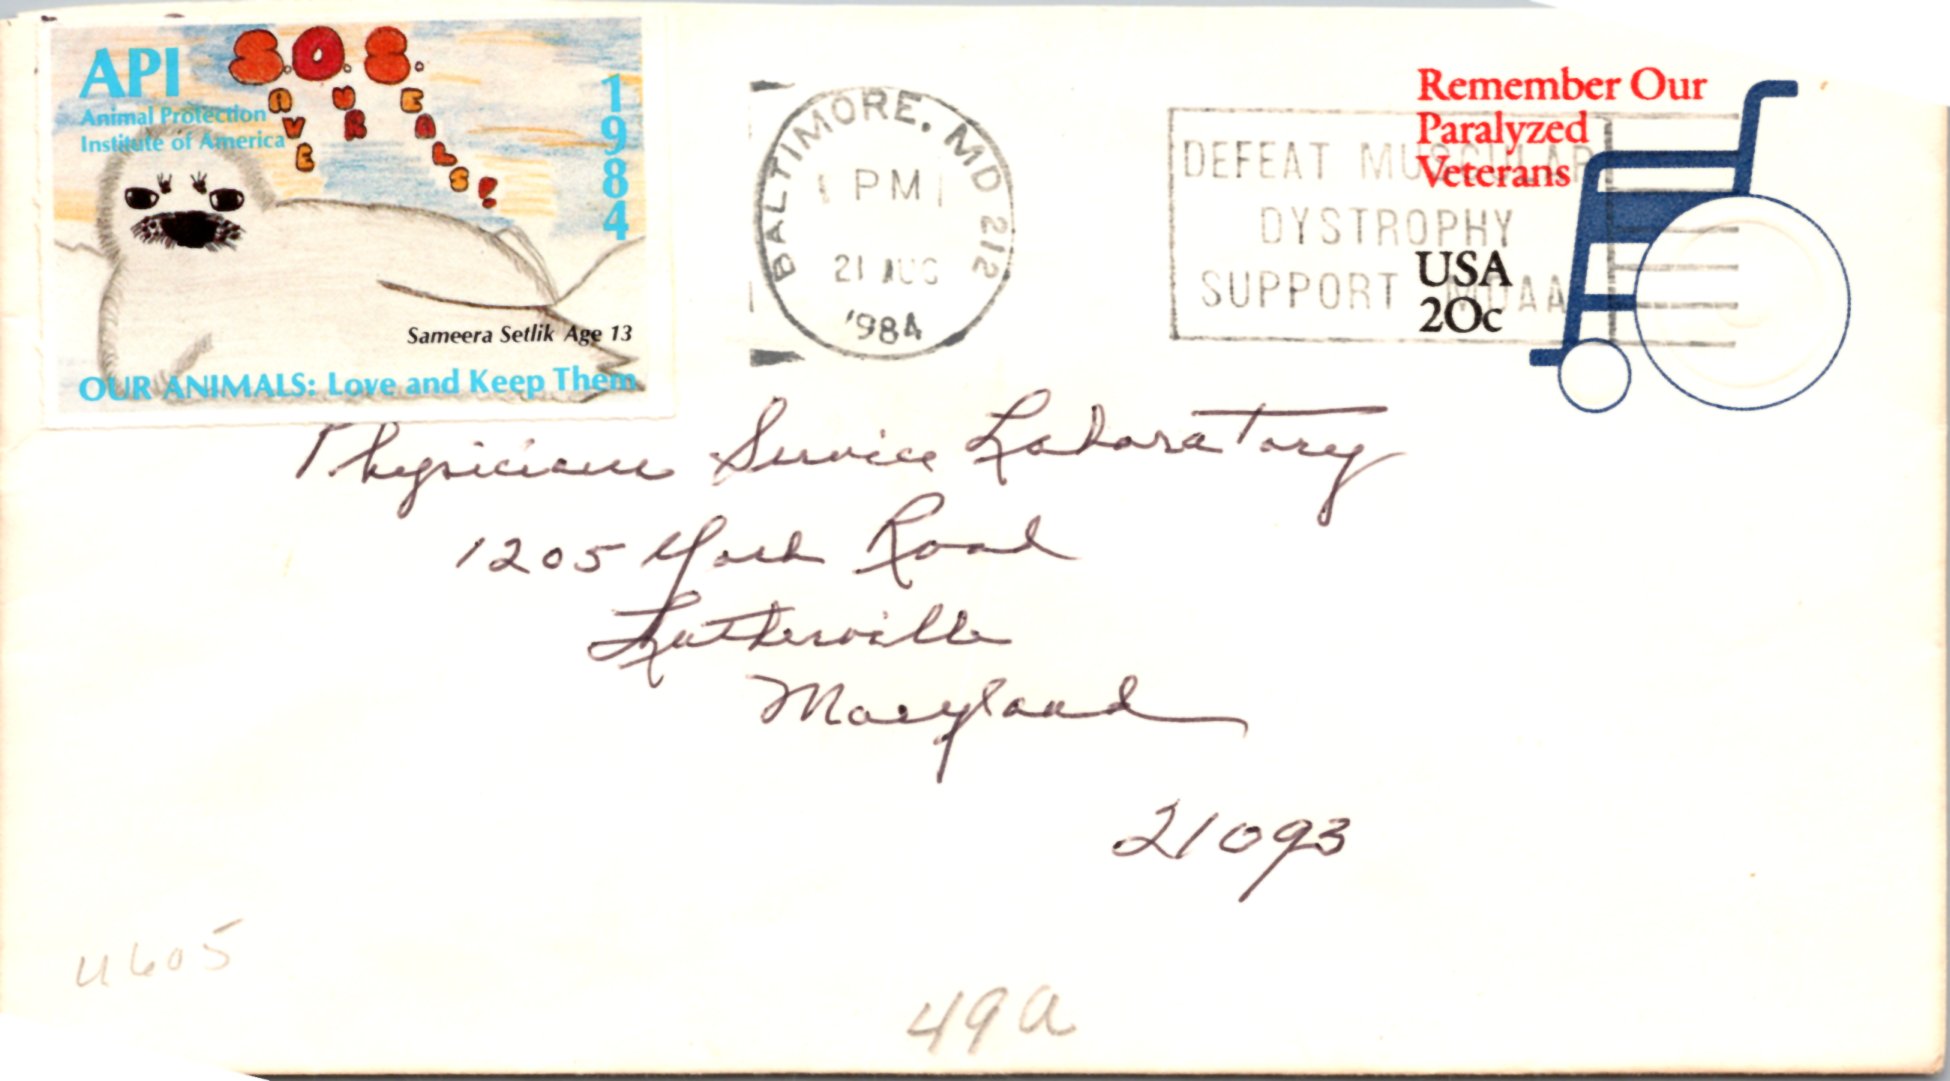 API
Animal Protection
Institute of America
S.O.S.
AVE
UR
EALS!
1984
Sameera Setlik Age 13
OUR ANIMALS: Love and Keep Them
BALTIMORE, MD 212
PM
21 AUG
1984
DEFEAT MUSCULAR
DYSTROPHY
SUPPORT MDAA
Remember Our
Paralyzed
Veterans
USA
20c
Physicians Service Laboratory
1205 York Road
Lutherville
Maryland
21093
U605
49a